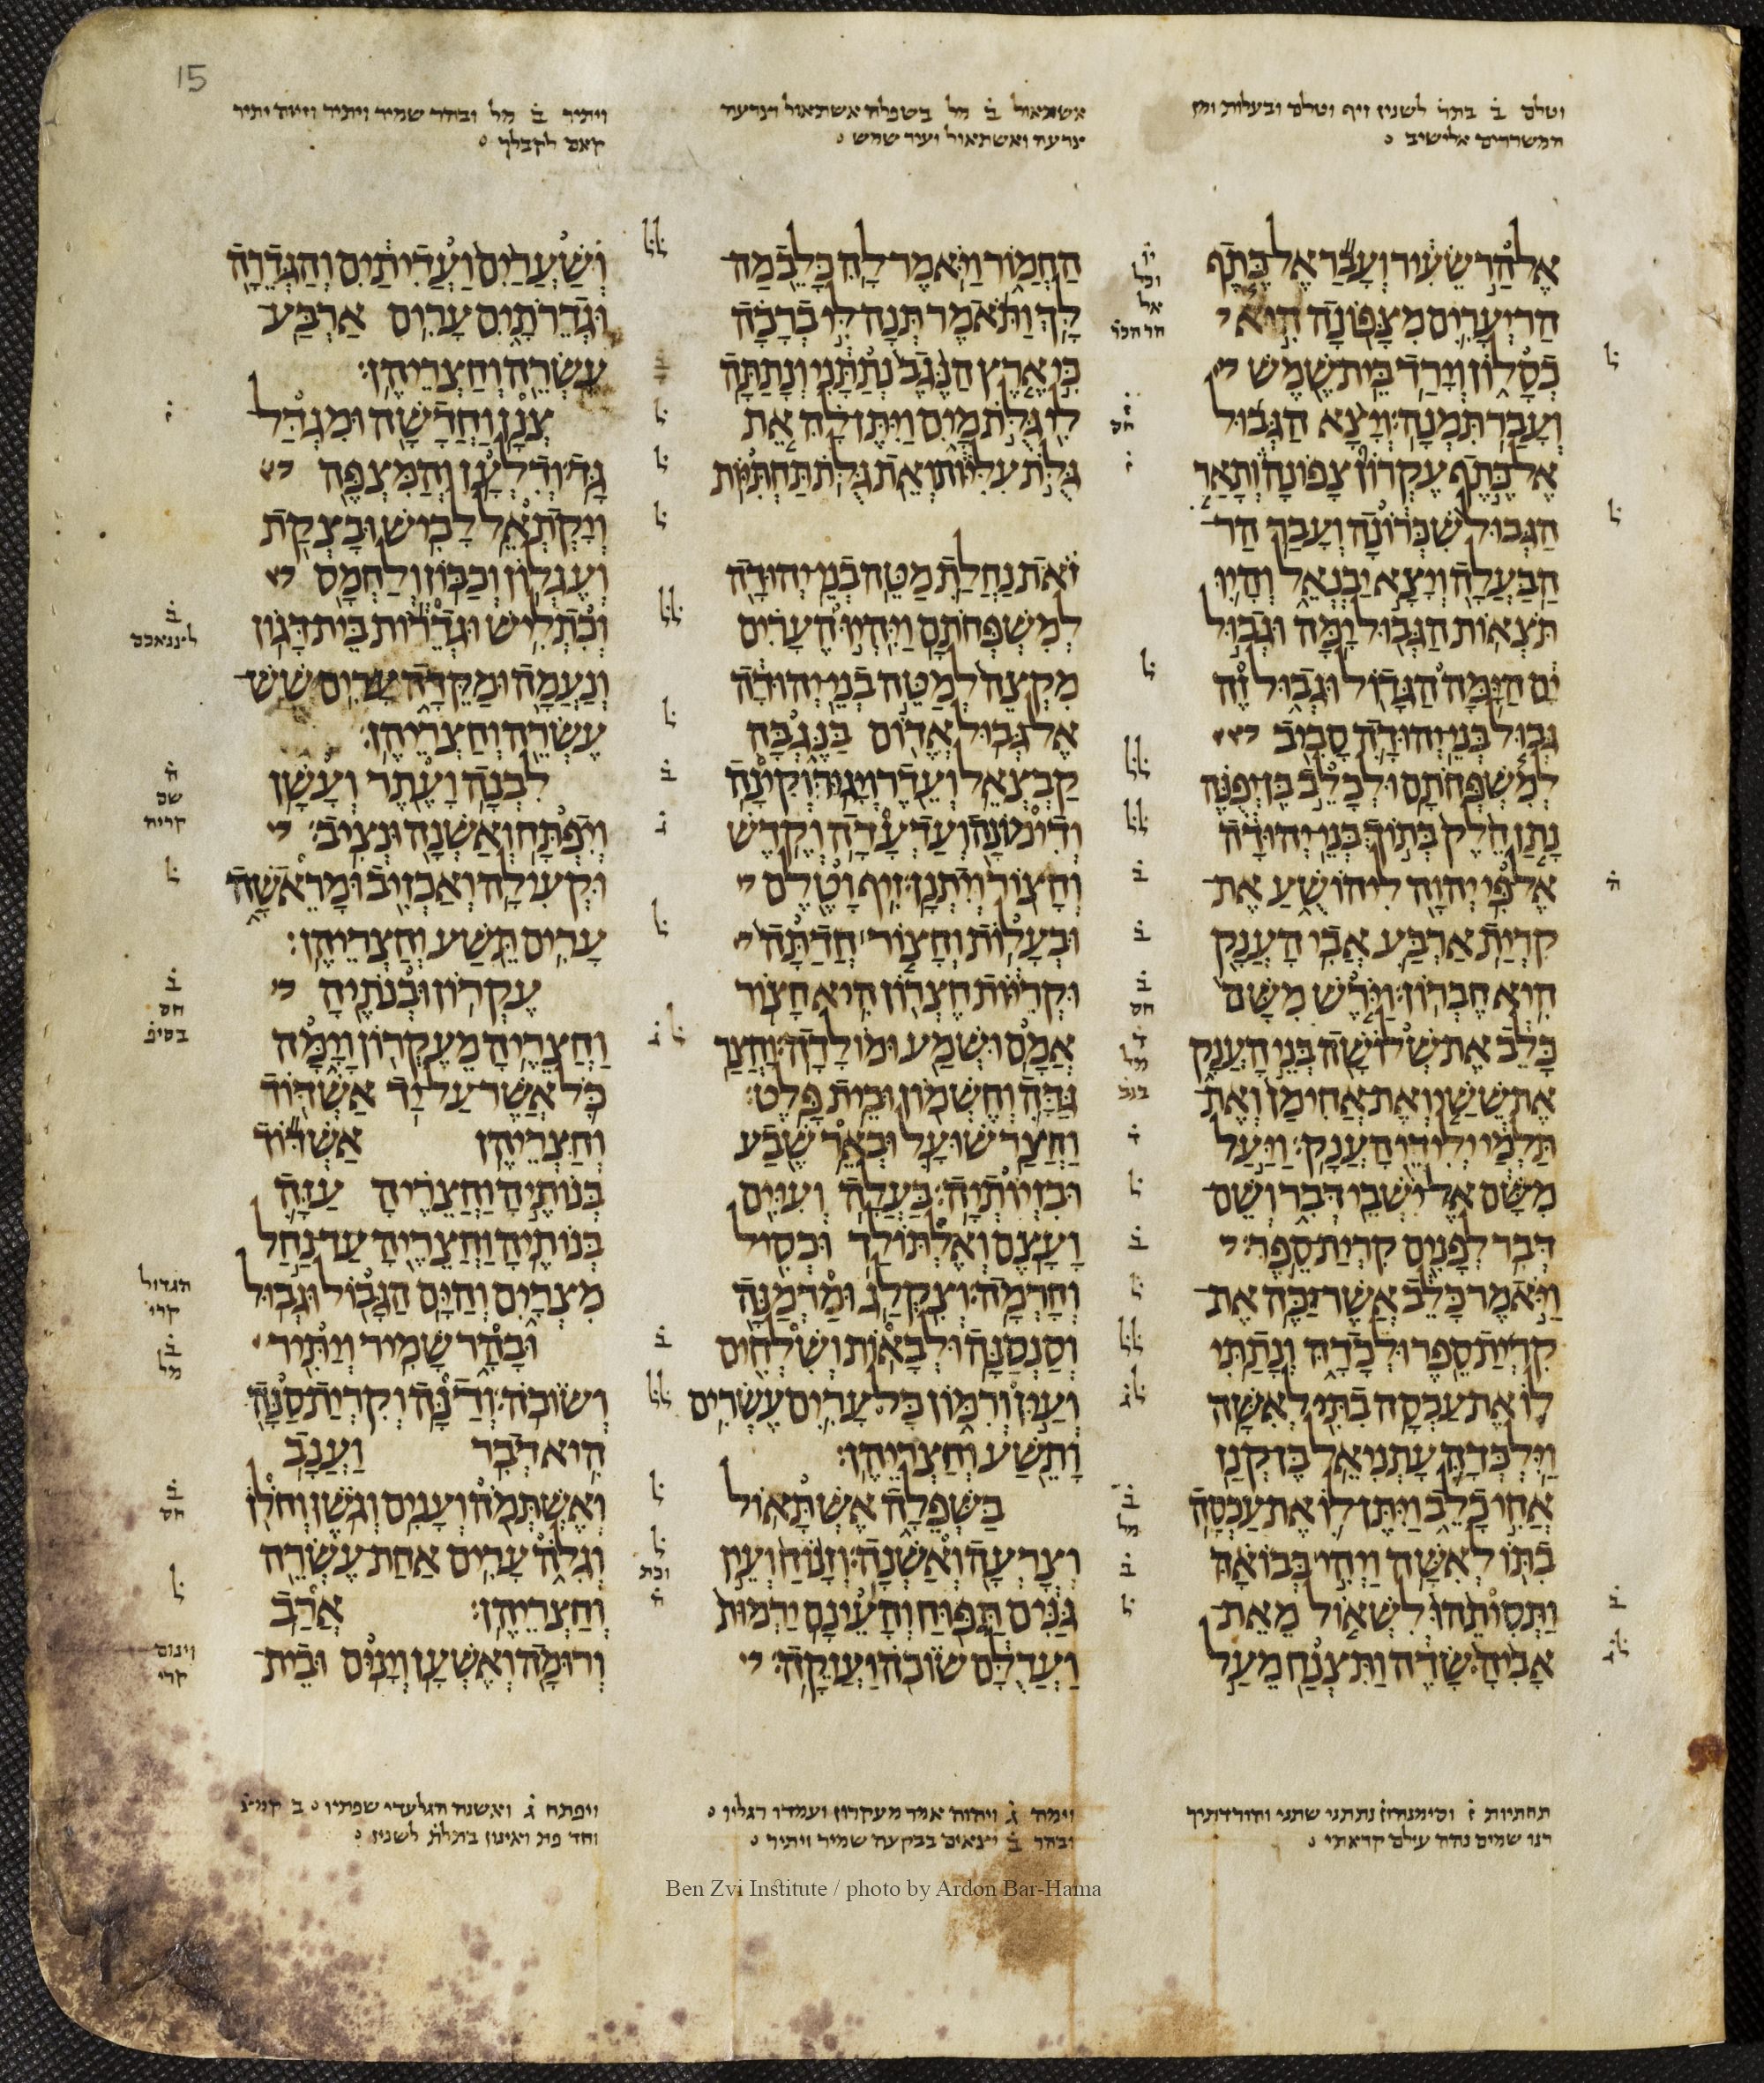 15
וטלם ב בתר לשנין זיף וטלם ובעלות ומן
המשררים אלישיב
אשתאול ב מל בשפלה אשתאול וצרעה
צרעה ואשתאול ועיר שמש
ויתיר ב מל ובהר שמיר ויתיר וזיוה יתיר
קאם לקבלך
אל הר שעיר ועבר אל כתף
הר יערים מצפונה היא
כסלון וירד בית שמש
ועבר תמנה׃ ויצא הגבול
אל כתף עקרון צפונה ותאר
הגבול שכרונה ועבר הר
הבעלה ויצא יבנאל והיו
תצאות הגבול ימה׃ וגבול
ים הימה הגדול וגבול זה
גבול בני יהודה סביב
למשפחתם׃ ולכלב בן יפנה
נתן חלק בתוך בני יהודה
אל פי יהוה ליהושע את
קרית ארבע אבי הענק
היא חברון׃ וירש משם
כלב את שלושה בני הענק
את ששי ואת אחימן ואת
תלמי ילידי הענק׃ ויעל
משם אל ישבי דבר ושם
דבר לפנים קרית ספר׃
ויאמר כלב אשר יכה את
קרית ספר ולכדה ונתתי
לו את עכסה בתי לאשה׃
וילכדה עתניאל בן קנז
אחי כלב ויתן לו את עכסה
בתו לאשה׃ ויהי בבואה
ותסיתהו לשאול מאת
אביה שדה ותצנח מעל
החמור ויאמר לה כלב מה
לך׃ ותאמר תנה לי ברכה
כי ארץ הנגב נתתני ונתתה
לי גלת מים ויתן לה את
גלת עליות ואת גלת תחתיות׃
זאת נחלת מטה בני יהודה
למשפחתם׃ ויהיו הערים
מקצה למטה בני יהודה
אל גבול אדום בנגבה
קבצאל ועדר ויגור׃ וקינה
ודימונה ועדעדה׃ וקדש
וחצור ויתנן׃ זיף וטלם
ובעלות׃ וחצור חדתה
וקריות חצרון היא חצור׃
אמם ושמע ומולדה׃ וחצר
גדה וחשמון ובית פלט׃
וחצר שועל ובאר שבע
ובזיותיה׃ בעלה ועיים
ועצם׃ ואלתולד וכסיל
וחרמה׃ וצקלג ומדמנה
וסנסנה׃ ולבאות ושלחים
ועין ורמון כל ערים עשרים
ותשע וחצריהן׃
בשפלה אשתאול
וצרעה ואשנה׃ וזנוח ועין
גנים תפוח והעינם׃ ירמות
ועדלם שוכה ועזקה׃
ושערים ועדיתים והגדרה
וגדרתים ערים ארבע
עשרה וחצריהן׃
צנן וחדשה ומגדל
גד׃ ודלען והמצפה
ויקתאל׃ לכיש ובצקת
ועגלון׃ וכבון ולחמס
וכתליש׃ וגדרות בית דגון
ונעמה ומקדה ערים שש
עשרה וחצריהן׃
לבנה ועתר ועשן׃
ויפתח ואשנה ונציב׃
וקעילה ואכזיב ומראשה
ערים תשע וחצריהן׃
עקרון ובנתיה
וחצריה׃ מעקרון וימה
כל אשר על יד אשדוד
וחצריהן׃ אשדוד
בנותיה וחצריה עזה
בנותיה וחצריה עד נחל
מצרים והים הגבול וגבול׃
ובהר שמיר ויתיר
ושוכה׃ ודנה וקרית סנה
היא דבר׃ וענב
ואשתמה וענים׃ וגשן וחלן
וגלה ערים אחת עשרה
וחצריהן׃ ארב
ורומה ואשען׃ וינים ובית
תחתיות ז וסימנהון נתתני שתני והורדתיך
רנו שמים נהה עילם קראתי
וימה ג ויהוה אמר מעקרון ועמדו רגליו
ובהר ב יצאים בבקעה שמיר ויתיר
ויפתח ג ואשנה הגלעדי שפתיו ב קמצ
וחד פת ואינון בתלת לשנין
Ben Zvi Institute / photo by Ardon Bar-Hama